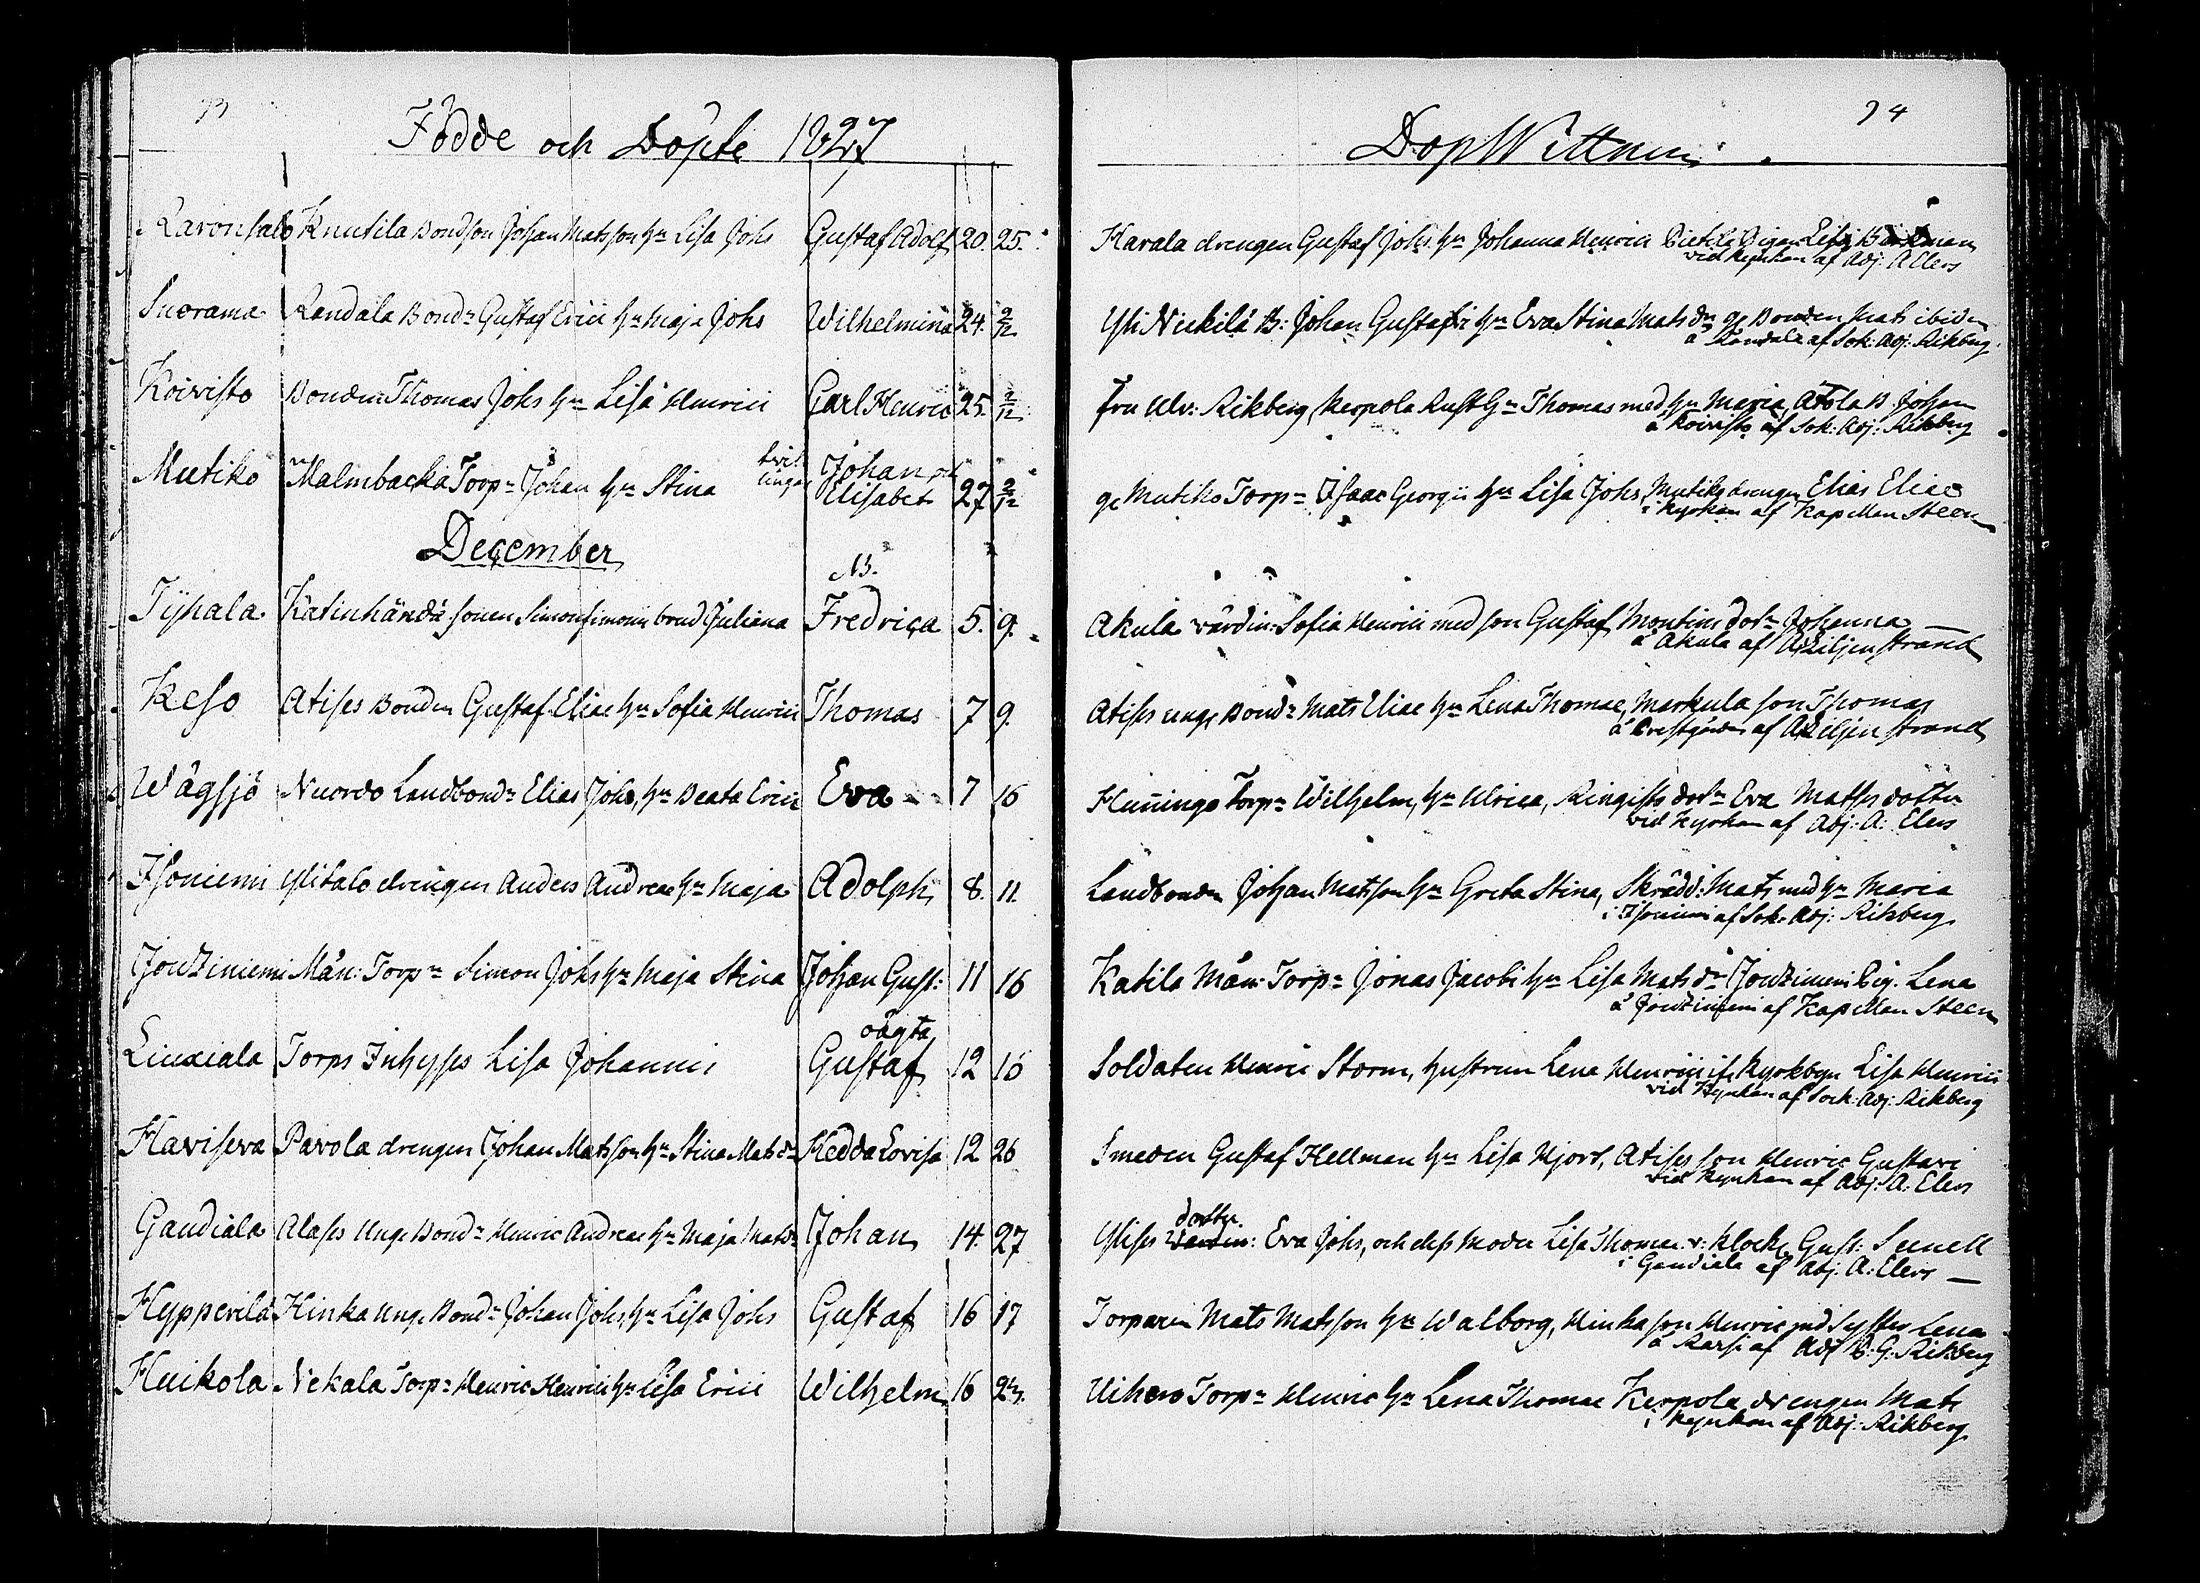 93
Födde och Döpte 1827
Laronsalo Knutila Bondson Johan Matsson hu Lisa Johs Gustaf Adolf 20. 25.
Suorama Randala Bond: Gustaf Erici hu Maja Johs Wilhelmina 24. 2/12
Koivisto Bonden Thomas Johs hu Lisa Henrici Carl Henric 25. 2/12
Mutiko Malmbacka Torp: Johan hu Stina tvillingar Johan och Elisabet 27 2/12
December
Typala Katinhändä sonen Simon Simonis brud Juliana NB. Fredrica 5. 9.
Keso Atises Bonden Gustaf Eliae hu Sofia Henrici Thomas 7 9.
Wågsjö Nuordo Landbond: Elias Johs, hu Beata Erici Eva 7 16
Isoniemi Ylitalo drengen Anders Andreae hu Maja Adolph 8. 11.
Jouziniemi Mån: Torp: Simon Johs hu Maja Stina Johan Gust: 11 16
Liuxiala Torps Inhyses Lisa Johannis oägta Gustaf 12 16
Haviseva Pavola drengen Johan Matsson hu Stina Mats dr Hedda Lovisa 12 26
Gaudiala Alases Unge Bond: Henric Andreae hu Maja Mats dr Johan 14. 27
Hypperilä Hinka Unge Bond: Johan Johs, hu Lisa Johs Gustaf 16 17
Huikola Nekala Torp: Henric Henrici hu Lisa Erici Wilhelm 16 23.
94
DopWittnen
Havala drengen Gustaf Johs hu Johanna Henrici Pietilä Pigan Lisa
vid kyrkan af Adj: A Elers
Yli Nickilä B: Johan Gustafsi hu Eva Stina Mats dr ge Bonden Mats ibidem
å Randala af Sok: Adj: Rikberg
fru Ulr: Rikberg, Kerpola Rusth Thomas med hu Maria, Atola B Johan
å Koivisto af Sok: Adj: Rikberg
ge Mutiko Torp: Isaac Georgii hu Lisa Johs, Mutiko drengen Elias Eliae
i kyrkan af Kapellan Steen
Akula värdin: Sofia Henrici med son Gustaf, Montins dotr Johanna
å Akula af A Liljenstrand
Atises unge Bond: Mats Eliae hu Lena Thomae, Markula son Thomas
å Prestgården af A Liljenstrand
Hunninge Torp: Wilhelm, hu Ulrica, Ringists dotr Eva Matses dotter
vid Kyrkan af Adj: A: Elers
Landbonden Johan Matsson hu Greta Stina, Skrädd: Mats med hu Maria
i Isoniemi af Sok: Adj: Rikberg
Katila Mån: Torp: Jonas Jacobi hu Lisa Mats dr Jouziniemi Pig. Lena
å Jouziniemi af Kapellan Steen
Soldaten Henric Storm, hustrun Lena Henrici if. Kyrkbyn Lisa Henrici
vid Kyrkan af Sock: Adj: Rikberg
Smeden Gustaf Hellman hu Lisa Hjort, Atises son Henric Gustavi
vid kyrkan af Adj: A: Elers
dotter
Ylises Värdin: Eva Johs, och dess Moder Lisa Thomae v: klock. Gust:
i Gaudiala af Adj: A: Elers
Torparen Mats Matsson hu Walborg, Hinka son Henric med Syster Lena
å Karsi af Adj B: G: Rikberg
Uihero Torp: Henric hu Lena Thomae Kerpola drengen Mats
i kyrkan af Adj: Rikberg